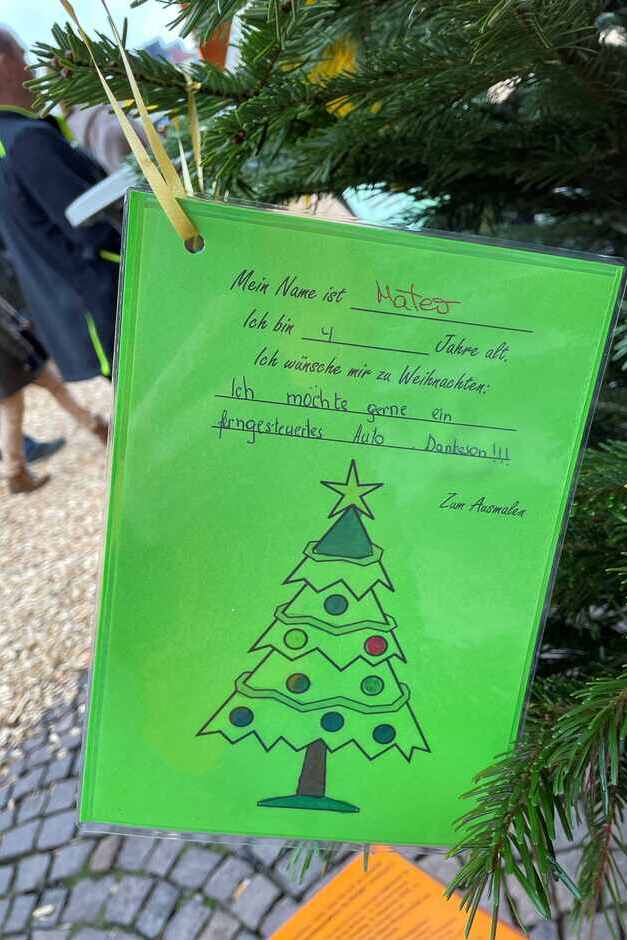 Mein Name ist Mateo
Ich bin 4 Jahre alt.
Ich wünsche mir zu Weihnachten:
Ich möchte gerne ein
ferngesteuertes Auto. Dankeson!!!
Zum Ausmalen